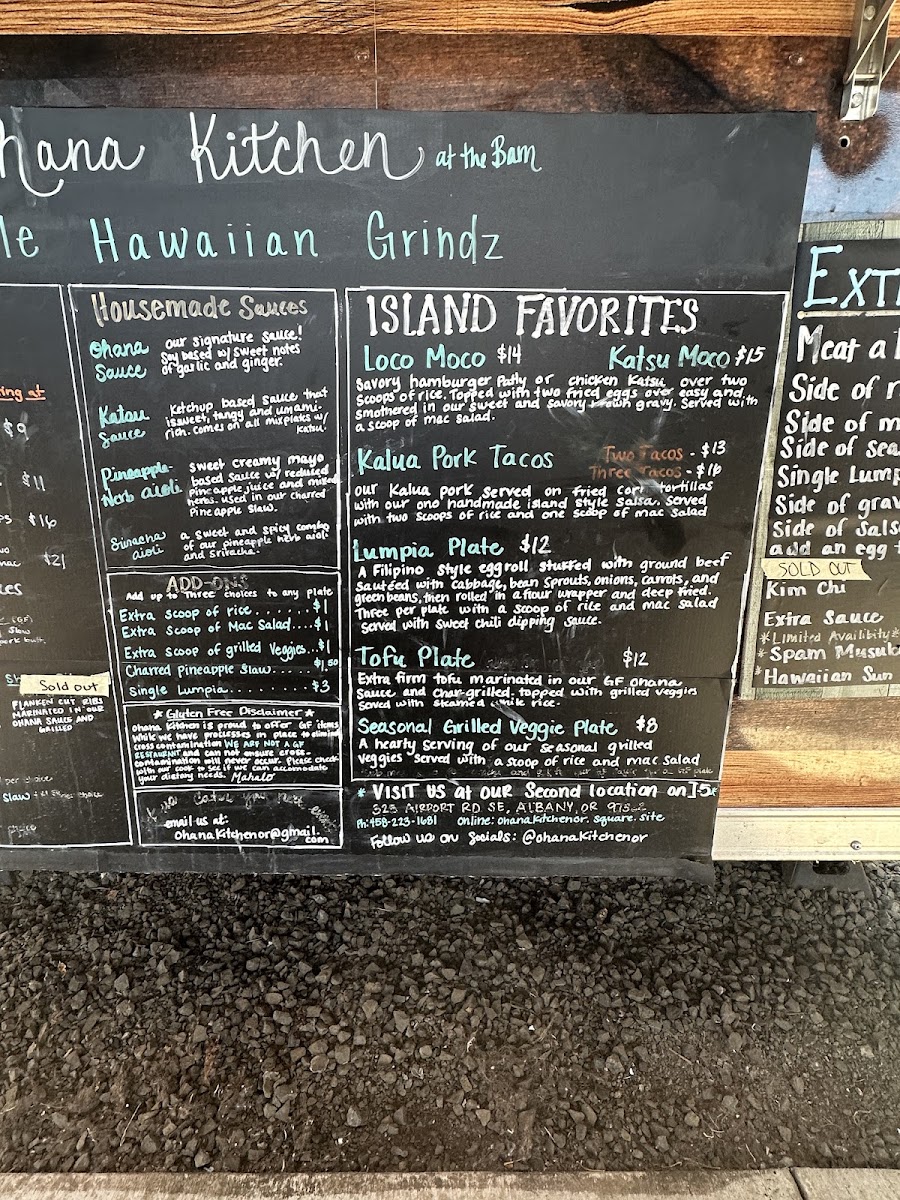 hana Kitchen at the Barn
le Hawaiian Grindz
ing at
$9
$11
ps $16
$21
Sold out
FLANKEN CUT RIBS
MARINATED IN OUR
OHANA SAUCE AND
GRILLED
per choice
Slaw
Housemade Sauces
Ohana Sauce
our signature sauce!
Soy based w/ sweet notes
of garlic and ginger.
Katsu Sauce
Ketchup based sauce that
is sweet, tangy and umami-
rich. comes on all mixplates w/
Katsu.
Pineapple-
Herb aioli
sweet creamy mayo
based sauce w/ reduced
Pineapple juice and mixed
herbs. used in our charred
Pineapple slaw.
Sriracha
aioli
a sweet and spicy combo
of our pineapple herb aioli
and Sriracha.
ADD-ONS
Add up to Three choices to any plate
Extra scoop of rice........$1
Extra scoop of Mac Salad....$1
Extra scoop of grilled Veggies..$1
Charred Pineapple Slaw.....$1.50
Single Lumpia.........$3
* Gluten Free Disclaimer *
Ohana Kitchen is proud to offer GF items
While we have proclesses in place to elimin
cross contamination WE ARE NOT A GF
RESTAURANT and can not ensure cross-
contamination will never occur. Please check
with our cook to see if we can accomodate
your dietary needs. Mahalo
email us at:
ohanakitchenor@gmail.
com
ISLAND FAVORITES
Loco Moco $14 Katsu Moco $15
Savory hamburger Patty or chicken Katsu over two
scoops of rice. Topped with two fried eggs over easy and
smothered in our sweet and savory brown gravy. Served with
a scoop of mac salad.
Kalua Pork Tacos
Two Tacos - $13
Three Tacos - $16
our Kalua pork served on fried corn tortillas
with our ono handmade island style salsa. served
with two scoops of rice and one scoop of mac salad
Lumpia Plate $12
A Filipino style eggroll stuffed with ground beef
sautéed with cabbage, bean sprouts, onions, carrots, and
green beans, then rolled in a flour wrapper and deep fried.
Three per plate with a scoop of rice and mac salad
served with sweet chili dipping sauce.
Tofu Plate $12
Extra firm tofu marinated in our GF Ohana
Sauce and char-grilled. topped with grilled veggies
Served with steamed white rice.
Seasonal Grilled Veggie Plate $8
A hearty serving of our seasonal grilled
veggies served with a scoop of rice and mac salad
* VISIT US at our Second location on I5*
323 AIRPORT RD SE, ALBANY, OR
Ph: 458-223-1681 Online: ohanakitchenor.square.site
Follow us on Socials: @ohanakitchenor
EXT
Meat a
Side of r
Side of m
Side of sea
Single Lump
Side of grav
Side of Sals
add an egg
SOLD OUT
Kim Chi
Extra Sauce
*Limited Availibity*
* Spam Musub
* Hawaiian Sun